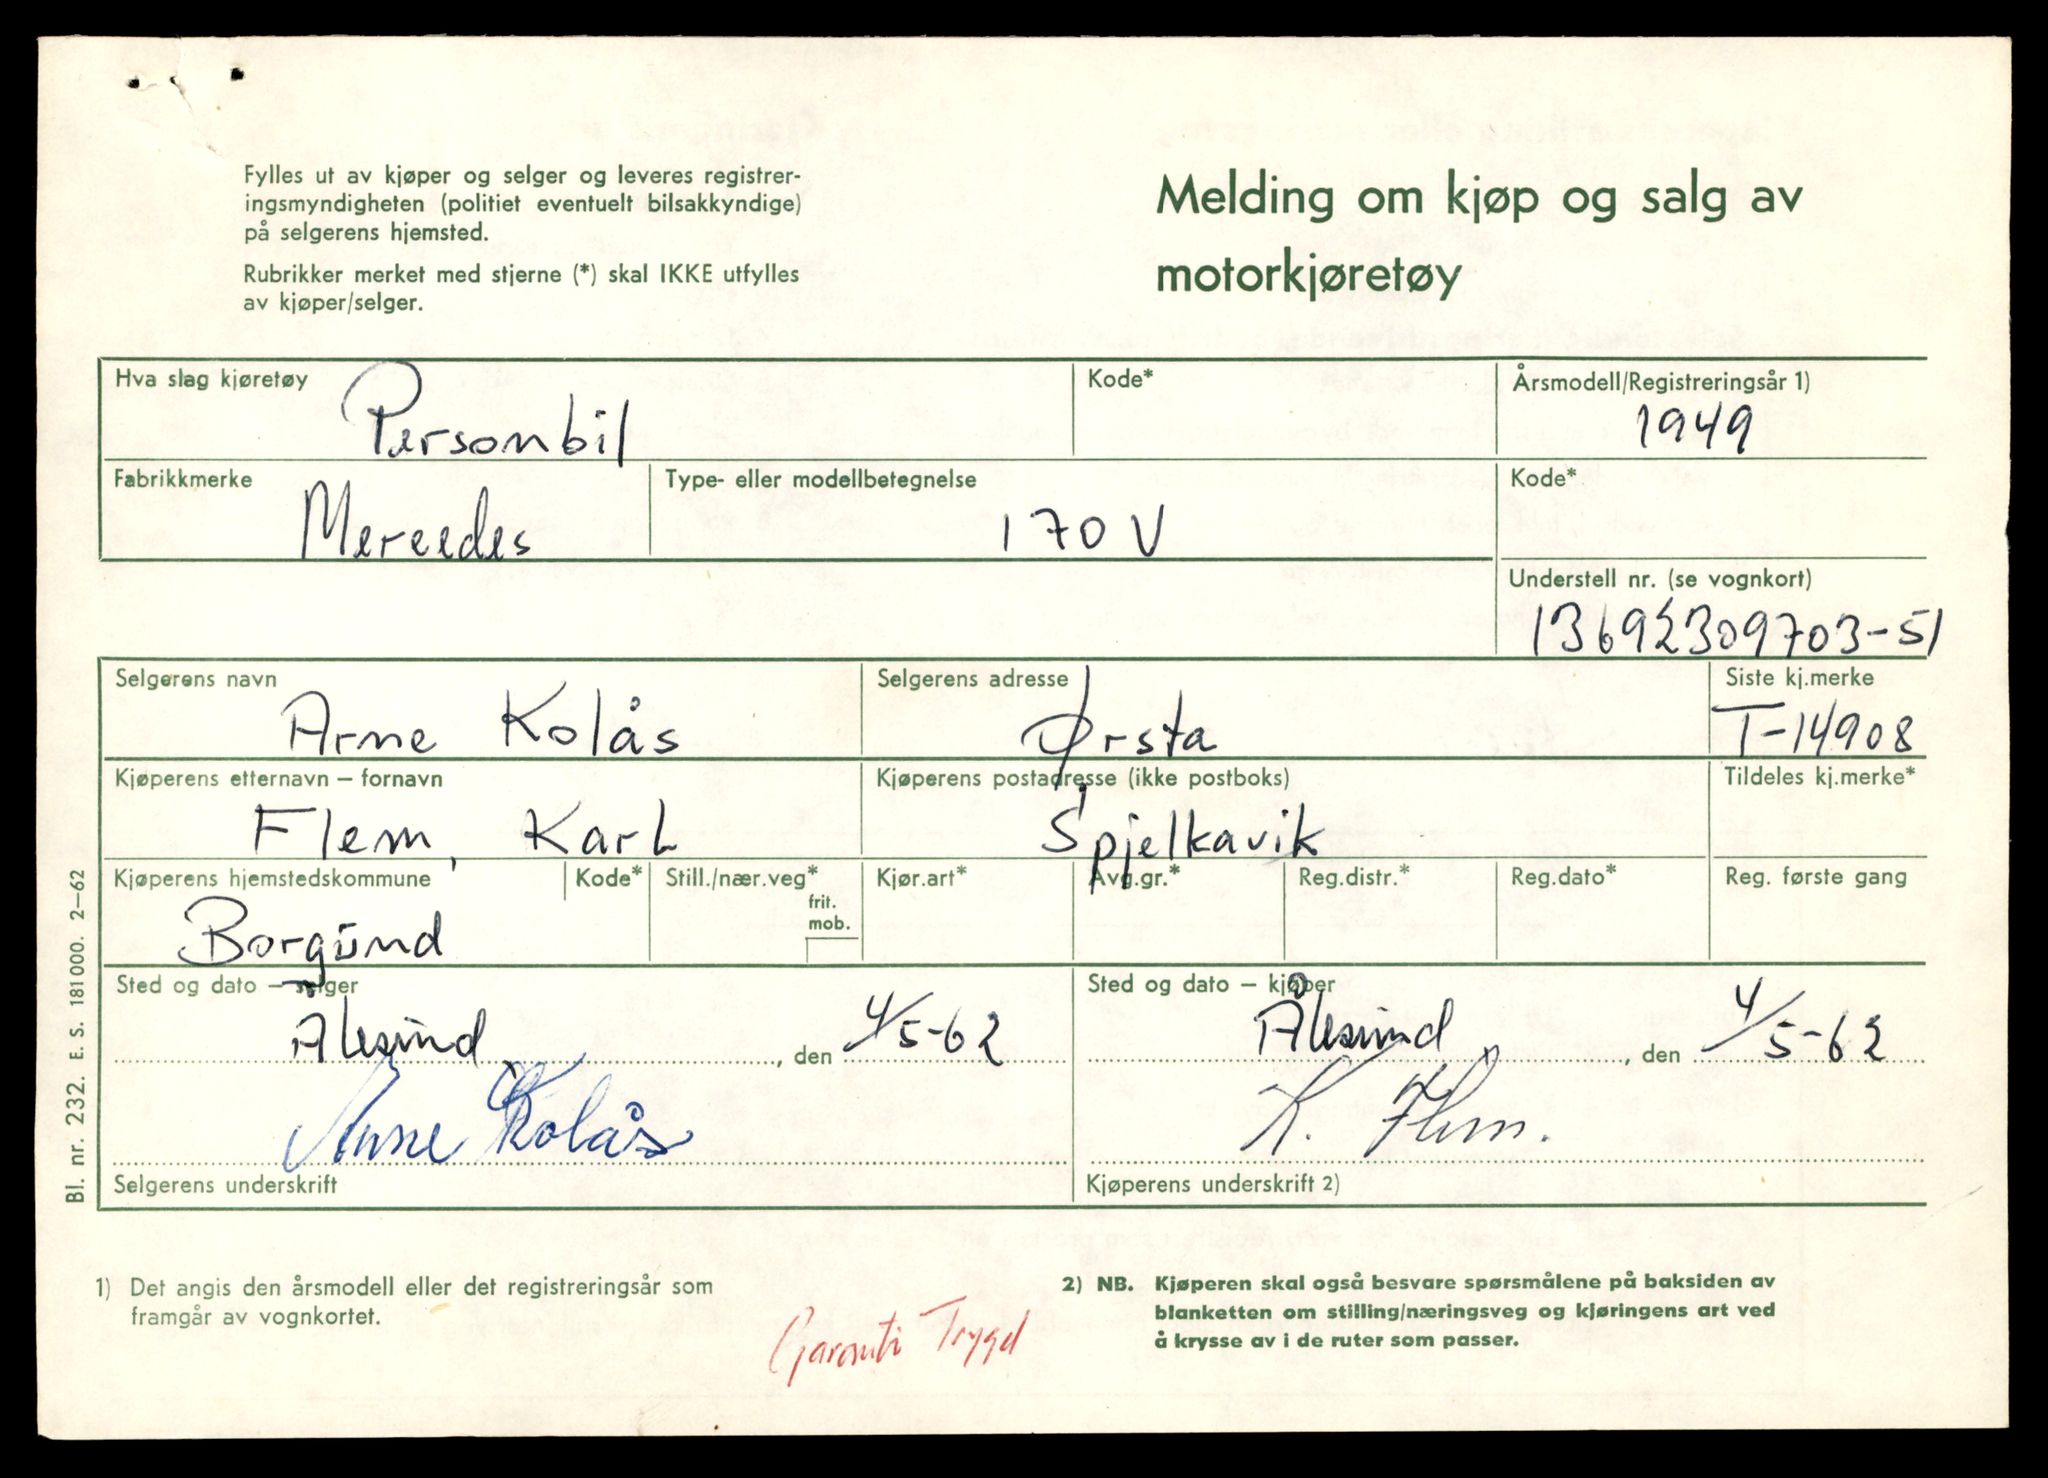 Fylles ut av kjøper og selger og leveres registrer-
ingsmyndigheten (politiet eventuelt bilsakkyndige)
på selgerens hjemsted.
Rubrikker merket med stjerne (*) skal IKKE utfylles
av kjøper/selger.
Melding om kjøp og salg av
motorkjøretøy
Hva slag kjøretøy
Personbil
Kode*
Årsmodell/Registreringsår 1)
1949
Fabrikkmerke
Mercedes
Type- eller modellbetegnelse
170 V
Kode*
Understell nr. (se vognkort)
13692309703-51
Selgerens navn
Arne Kolås
Selgerens adresse
Ørsta
Siste kj.merke
T-14908
Kjøperens etternavn – fornavn
Flem, Karl
Kjøperens postadresse (ikke postboks)
Spjelkavik
Tildeles kj.merke*
Kjøperens hjemstedskommune
Borgund
Kode*
Still./nær.veg*
frit.
mob.
Kjør.art*
Avg.gr.*
Reg.distr.*
Reg.dato*
Reg. første gang
Sted og dato – selger
Ålesund, den 4/5-62
Sted og dato – kjøper
Ålesund, den 4/5-62
Arne Kolås
K. Flem.
Selgerens underskrift
Kjøperens underskrift 2)
Bl. nr. 232. E. S. 181000. 2–62
1) Det angis den årsmodell eller det registreringsår som
framgår av vognkortet.
2) NB. Kjøperen skal også besvare spørsmålene på baksiden av
blanketten om stilling/næringsveg og kjøringens art ved
å krysse av i de ruter som passer.
Garanti Trygd